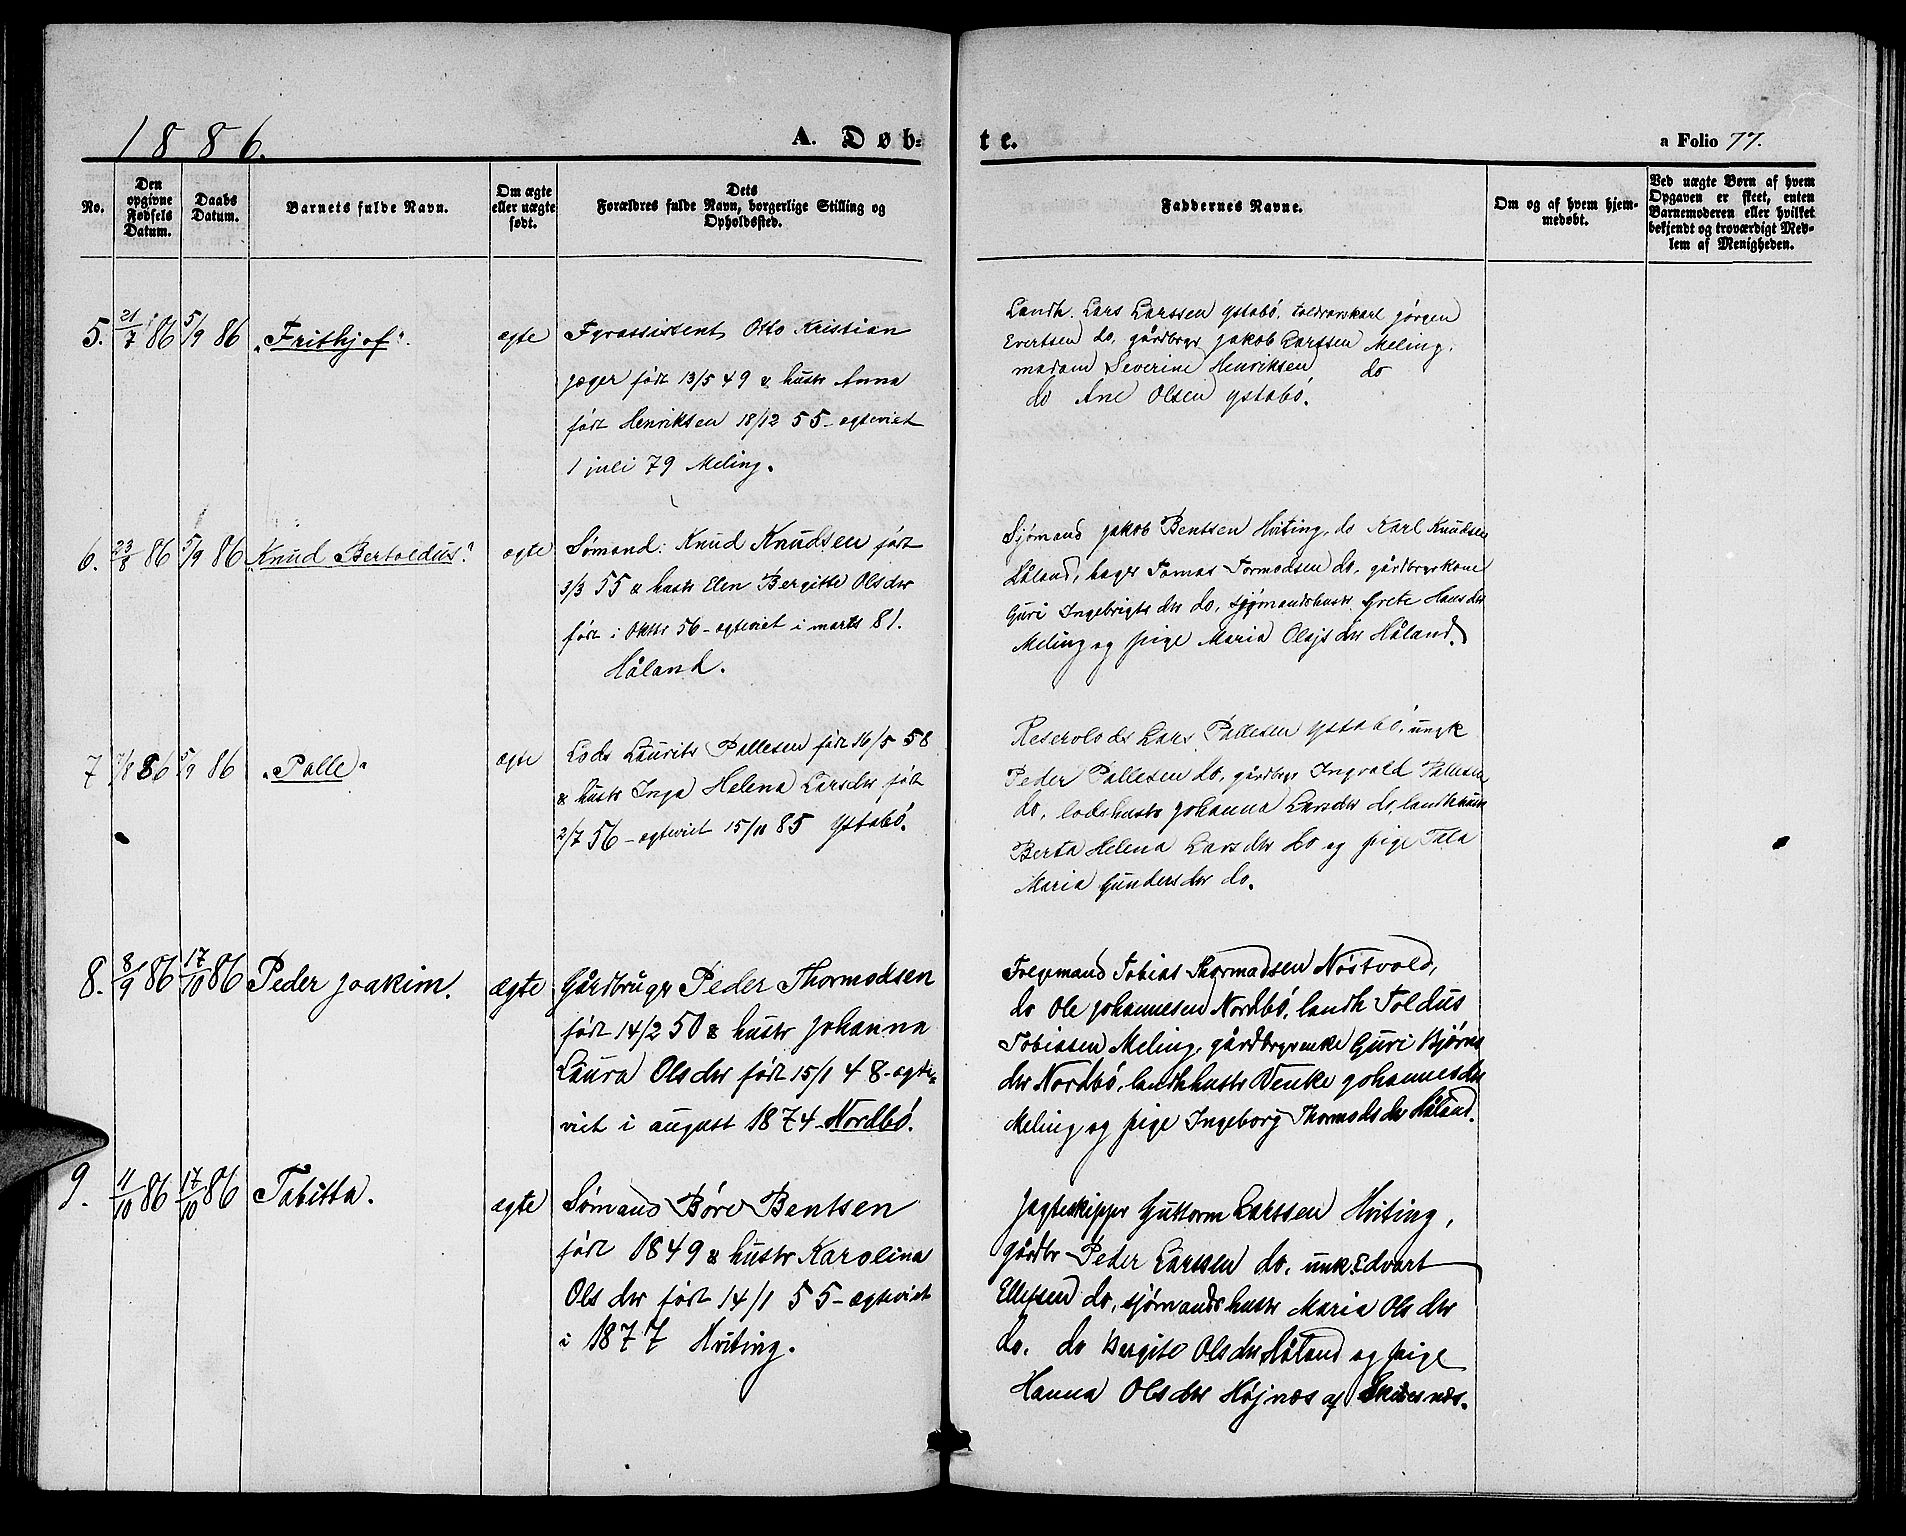 1886.
A. Døb-
te.
a Folio 77.
No.
Den
opgivne
Fødsels
Datum.
Daabs
Datum.
Barnets fulde Navn.
Om ægte
eller uægte
født.
Dets
Forældres fulde Navn, borgerlige Stilling og
Opholdssted.
Faddernes Navne.
Om og af hvem hjem-
medøbt.
Ved uægte Børn af hvem
Opgaven er skeet, enten
Barnemoderen eller hvilket
bekjendt og troværdigt Med-
lem af Menigheden.
5.
21/7 86
5/9 86
"Frithjof".
ægte
Fyrassistent Otto Kristian
Jæger født 13/5 49 & hustr Anna
født Henriksen 18/12 55 - ægteviet
1 juli 79 Meling.
Landh. Lars Larssen Ystabö, toldranskarl Jörgen
Evertsen do, gårdbrgr Jakob Larssen Meling,
madam Severine Henriksen do
do Ane Olsen Ystabö.
6.
23/8 86
5/9 86
"Knud Bertoldus".
ægte
Sömand: Knud Knudsen født
3/3 55 & hustr Elen Bergitte Olsdtr
født i Oktbr 56 - ægteviet i marts 81.
Håland.
Sjömand Jakob Bentsen Hviting, do Karl Knudsen
Håland, Tomas Tormodsen do, gårdbrgrkone
Guri Ingebrigtsdtr do, sjømandshustr Grete Hansdtr
Meling og pige Maria Olajsdtr Håland.
7
7/8 86
5/9 86
"Palle"
ægte
Lods Laurits Pallesen født 16/5 58
& hustr Inga Helena Larsdtr født
2/7 56 - ægteviet 15/11 85 Ystabö.
Reservelods Lars Pallesen Ystabö, ungk
Peder Pallesen do, gårdbrgr Ingvald Pallesen
do, lodshustr Johanna Larsdtr do, landhhustr
Berta Helena Larsdtr do og pige Tala
Maria Gundersdtr do.
8.
8/9 86
17/10 86
Peder Joakim.
ægte
Gårdbrugr Peder Thormodsen
født 14/2 50 & hustr Johanna
Laura Olsdtr født 15/1 48 - ægte-
viet i august 1874 - Nordbö.
Folgemand Tobias Thormadsen Nöstvold,
do Ole Johannesen Nordbö, landh Toldus
Tobiassen Meling, gårdbrgrenke Guri Bjørns
dtr Nordbö, landhhustr Venke Johannesdtr
Meling og pige Ingeborg Thormodsdtr Håland.
9.
11/10 86
17/10 86
Tabitta.
ægte
Sömand Böre Bentsen
født 1849 & hustr Karolina
Olsdtr født 14/1 55 - ægteviet
i 1877 Hviting.
Jagteskippr Guttorm Larssen Hviting,
gårdbr Peder Larssen do, unk. Edvart
Ellefsen do, sjömandshustr Maria Olsdtr
do. do Bergite Olsdtr Håland og pige
Hanna Olsdtr Højnæs af Skudesnæs.